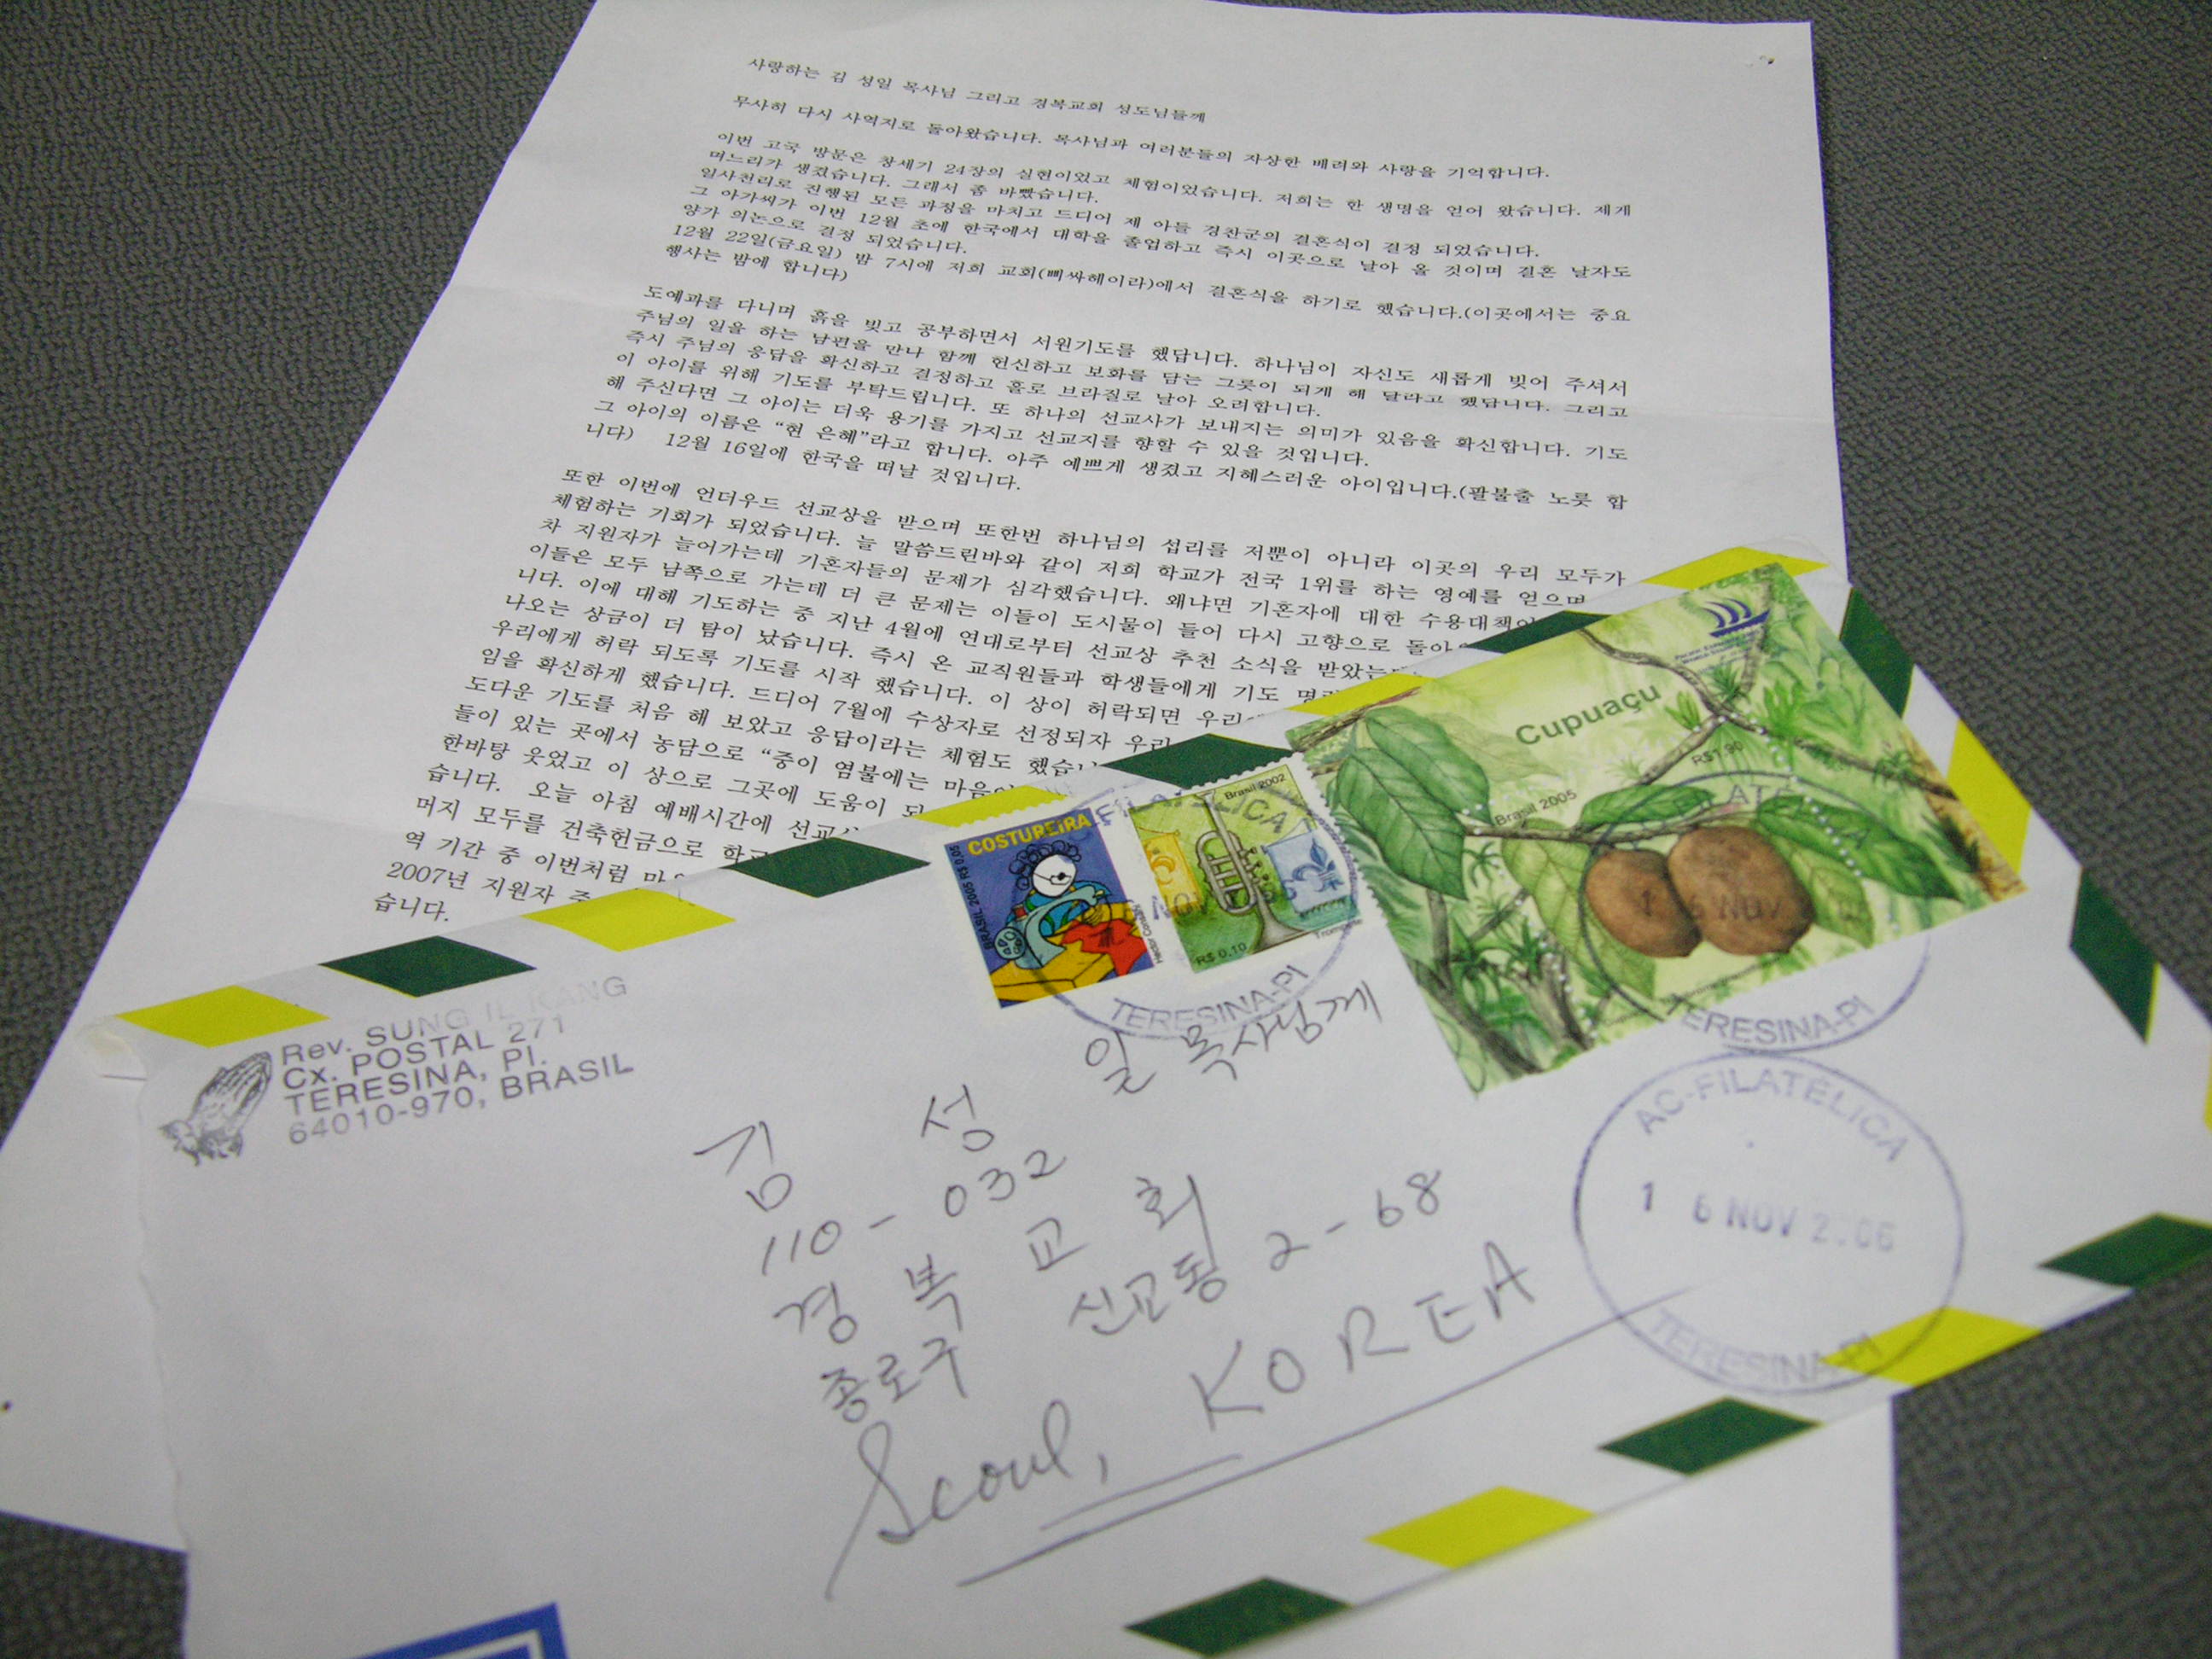 사랑하는 김 성일 목사님 그리고 경복교회 성도님들께
무사히 다시 사역지로 돌아왔습니다. 목사님과 여러분들의 자상한 배려와 사랑을 기억합니다.
이번 고국 방문은 창세기 24장의 실현이었고 체험이었습니다. 저희는 한 생명을 얻어 왔습니다. 제게
며느리가 생겼습니다. 그래서 좀 바빴습니다.
일사천리로 진행된 모든 과정을 마치고 드디어 제 아들 경찬군의 결혼식이 결정 되었습니다.
그 아가씨가 이번 12월 초에 한국에서 대학을 졸업하고 즉시 이곳으로 날아 올 것이며 결혼 날자도
양가 의논으로 결정 되었습니다.
12월 22일(금요일) 밤 7시에 저희 교회(삐싸헤이라)에서 결혼식을 하기로 했습니다.(이곳에서는 중요
행사는 밤에 합니다)
도예과를 다니며 흙을 빚고 공부하면서 서원기도를 했답니다. 하나님이 자신도 새롭게 빚어 주셔서
주님의 일을 하는 남편을 만나 함께 헌신하고 보화를 담는 그릇이 되게 해 달라고 했답니다. 그리고
즉시 주님의 응답을 확신하고 결정하고 홀로 브라질로 날아 오려합니다.
이 아이를 위해 기도를 부탁드립니다. 또 하나의 선교사가 보내지는 의미가 있음을 확신합니다. 기도
해 주신다면 그 아이는 더욱 용기를 가지고 선교지를 향할 수 있을 것입니다.
그 아이의 이름은 “현 은혜”라고 합니다. 아주 예쁘게 생겼고 지혜스러운 아이입니다.(팔불출 노릇 합
니다) 12월 16일에 한국을 떠날 것입니다.
또한 이번에 언더우드 선교상을 받으며 또한번 하나님의 섭리를 저뿐이 아니라 이곳의 우리 모두가
체험하는 기회가 되었습니다. 늘 말씀드린바와 같이 저희 학교가 전국 1위를 하는 영예를 얻으며
차 지원자가 늘어가는데 기혼자들의 문제가 심각했습니다. 왜냐면 기혼자에 대한 수용대책이
이들은 모두 남쪽으로 가는데 더 큰 문제는 이들이 도시물이 들어 다시 고향으로
니다. 이에 대해 기도하는 중 지난 4월에 연대로부터 선교상 추천 소식을
나오는 상금이 더 탐이 났습니다. 즉시 온 교직원들과 학생들에게 기도
우리에게 허락 되도록 기도를 시작 했습니다. 이 상이 허락되면
임을 확신하게 했습니다. 드디어 7월에 수상자로 선정되자 우리
도다운 기도를 처음 해 보았고 응답이라는 체험도
들이 있는 곳에서 농담으로 “중이 염불에는
한바탕 웃었고 이 상으로 그곳에 도움이
습니다. 오늘 아침 예배시간에
머지 모두를 건축헌금으로
역 기간 중 이번처럼
2007년 지원자
습니다.
COSTUREIRA
BRASIL 2005 R$ 0,05
Brasil 2002
R$ 0,10
Cupuaçu
R$1,90
Brasil 2005
FILATÉLICA
NOV
TERESINA-PI
16 NOV
TERESINA-PI
Rev. SUNG IL KANG
Cx. POSTAL 271
TERESINA, PI.
64010-970, BRASIL
김 성 일 목사님께
110-032
경 복 교 회
종로구 신교동 2-68
Seoul, KOREA
AC-FILATÉLICA
16 NOV 2006
TERESINA-PI